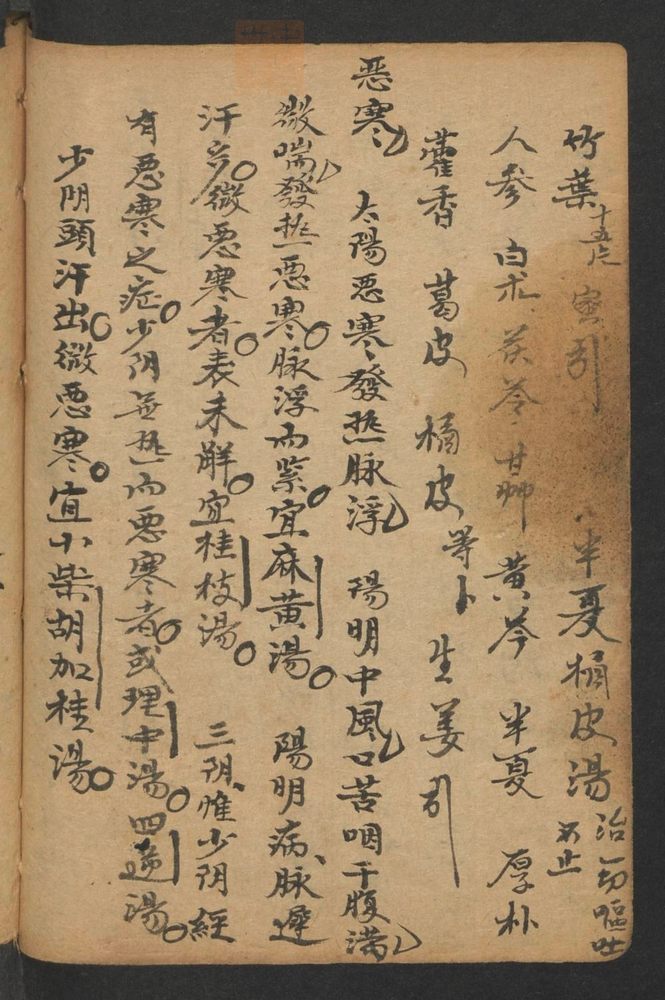 竹葉十五片 蜜引 半夏橘皮湯治一切嘔吐不止
人參 白朮 茯苓 甘艸 黄芩 半夏 厚朴
藿香 葛皮 橘皮等卜 生姜引
恶寒 太陽恶寒發热脉浮 陽明中風口苦咽干腹满
微喘發热恶寒脉浮而紧宜麻黄湯 陽明病脉遲
汗多微恶寒者表未解宜桂枝湯 三阴惟少阴經
有恶寒之症少阴無热而恶寒者或理中湯四逆湯
少阴頭汗出微恶寒宜小柴胡加桂湯